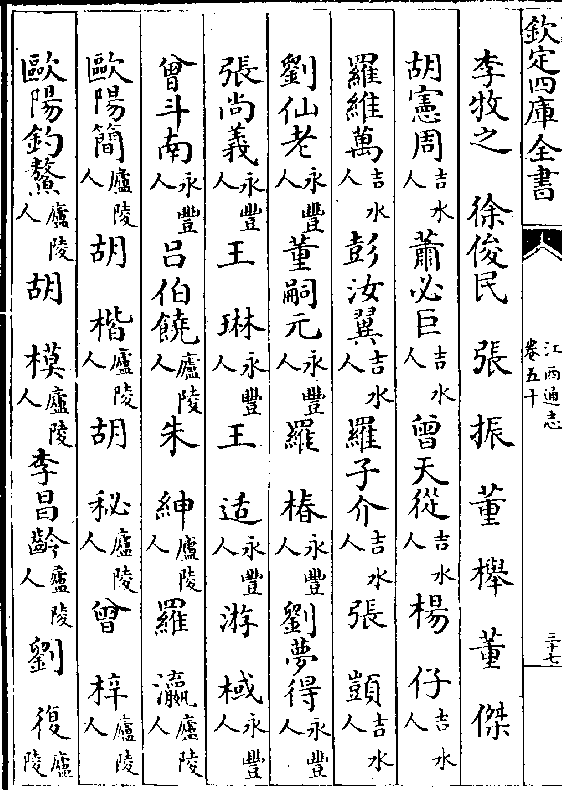 欽定四庫全書
江西通志
卷五十
三十七
李牧之 徐俊民 張振 董櫸 董傑
胡憲周吉水人 蕭必巨吉水人 曾天從吉水人 楊仔吉水人
羅維萬吉水人 彭汝翼吉水人 羅子介吉水人 張顗吉水人
劉仙老永豐人 董嗣元永豐人 羅椿永豐人 劉夢得永豐人
張尚義永豐人 王琳永豐人 王适永豐人 游棫永豐人
曾斗南永豐人 呂伯饒廬陵人 朱紳廬陵人 羅瀛廬陵人
歐陽簡廬陵人 胡楷廬陵人 胡秘廬陵人 曾梓廬陵人
歐陽釣鰲廬陵人 胡模廬陵人 李昌齡廬陵人 劉復廬陵